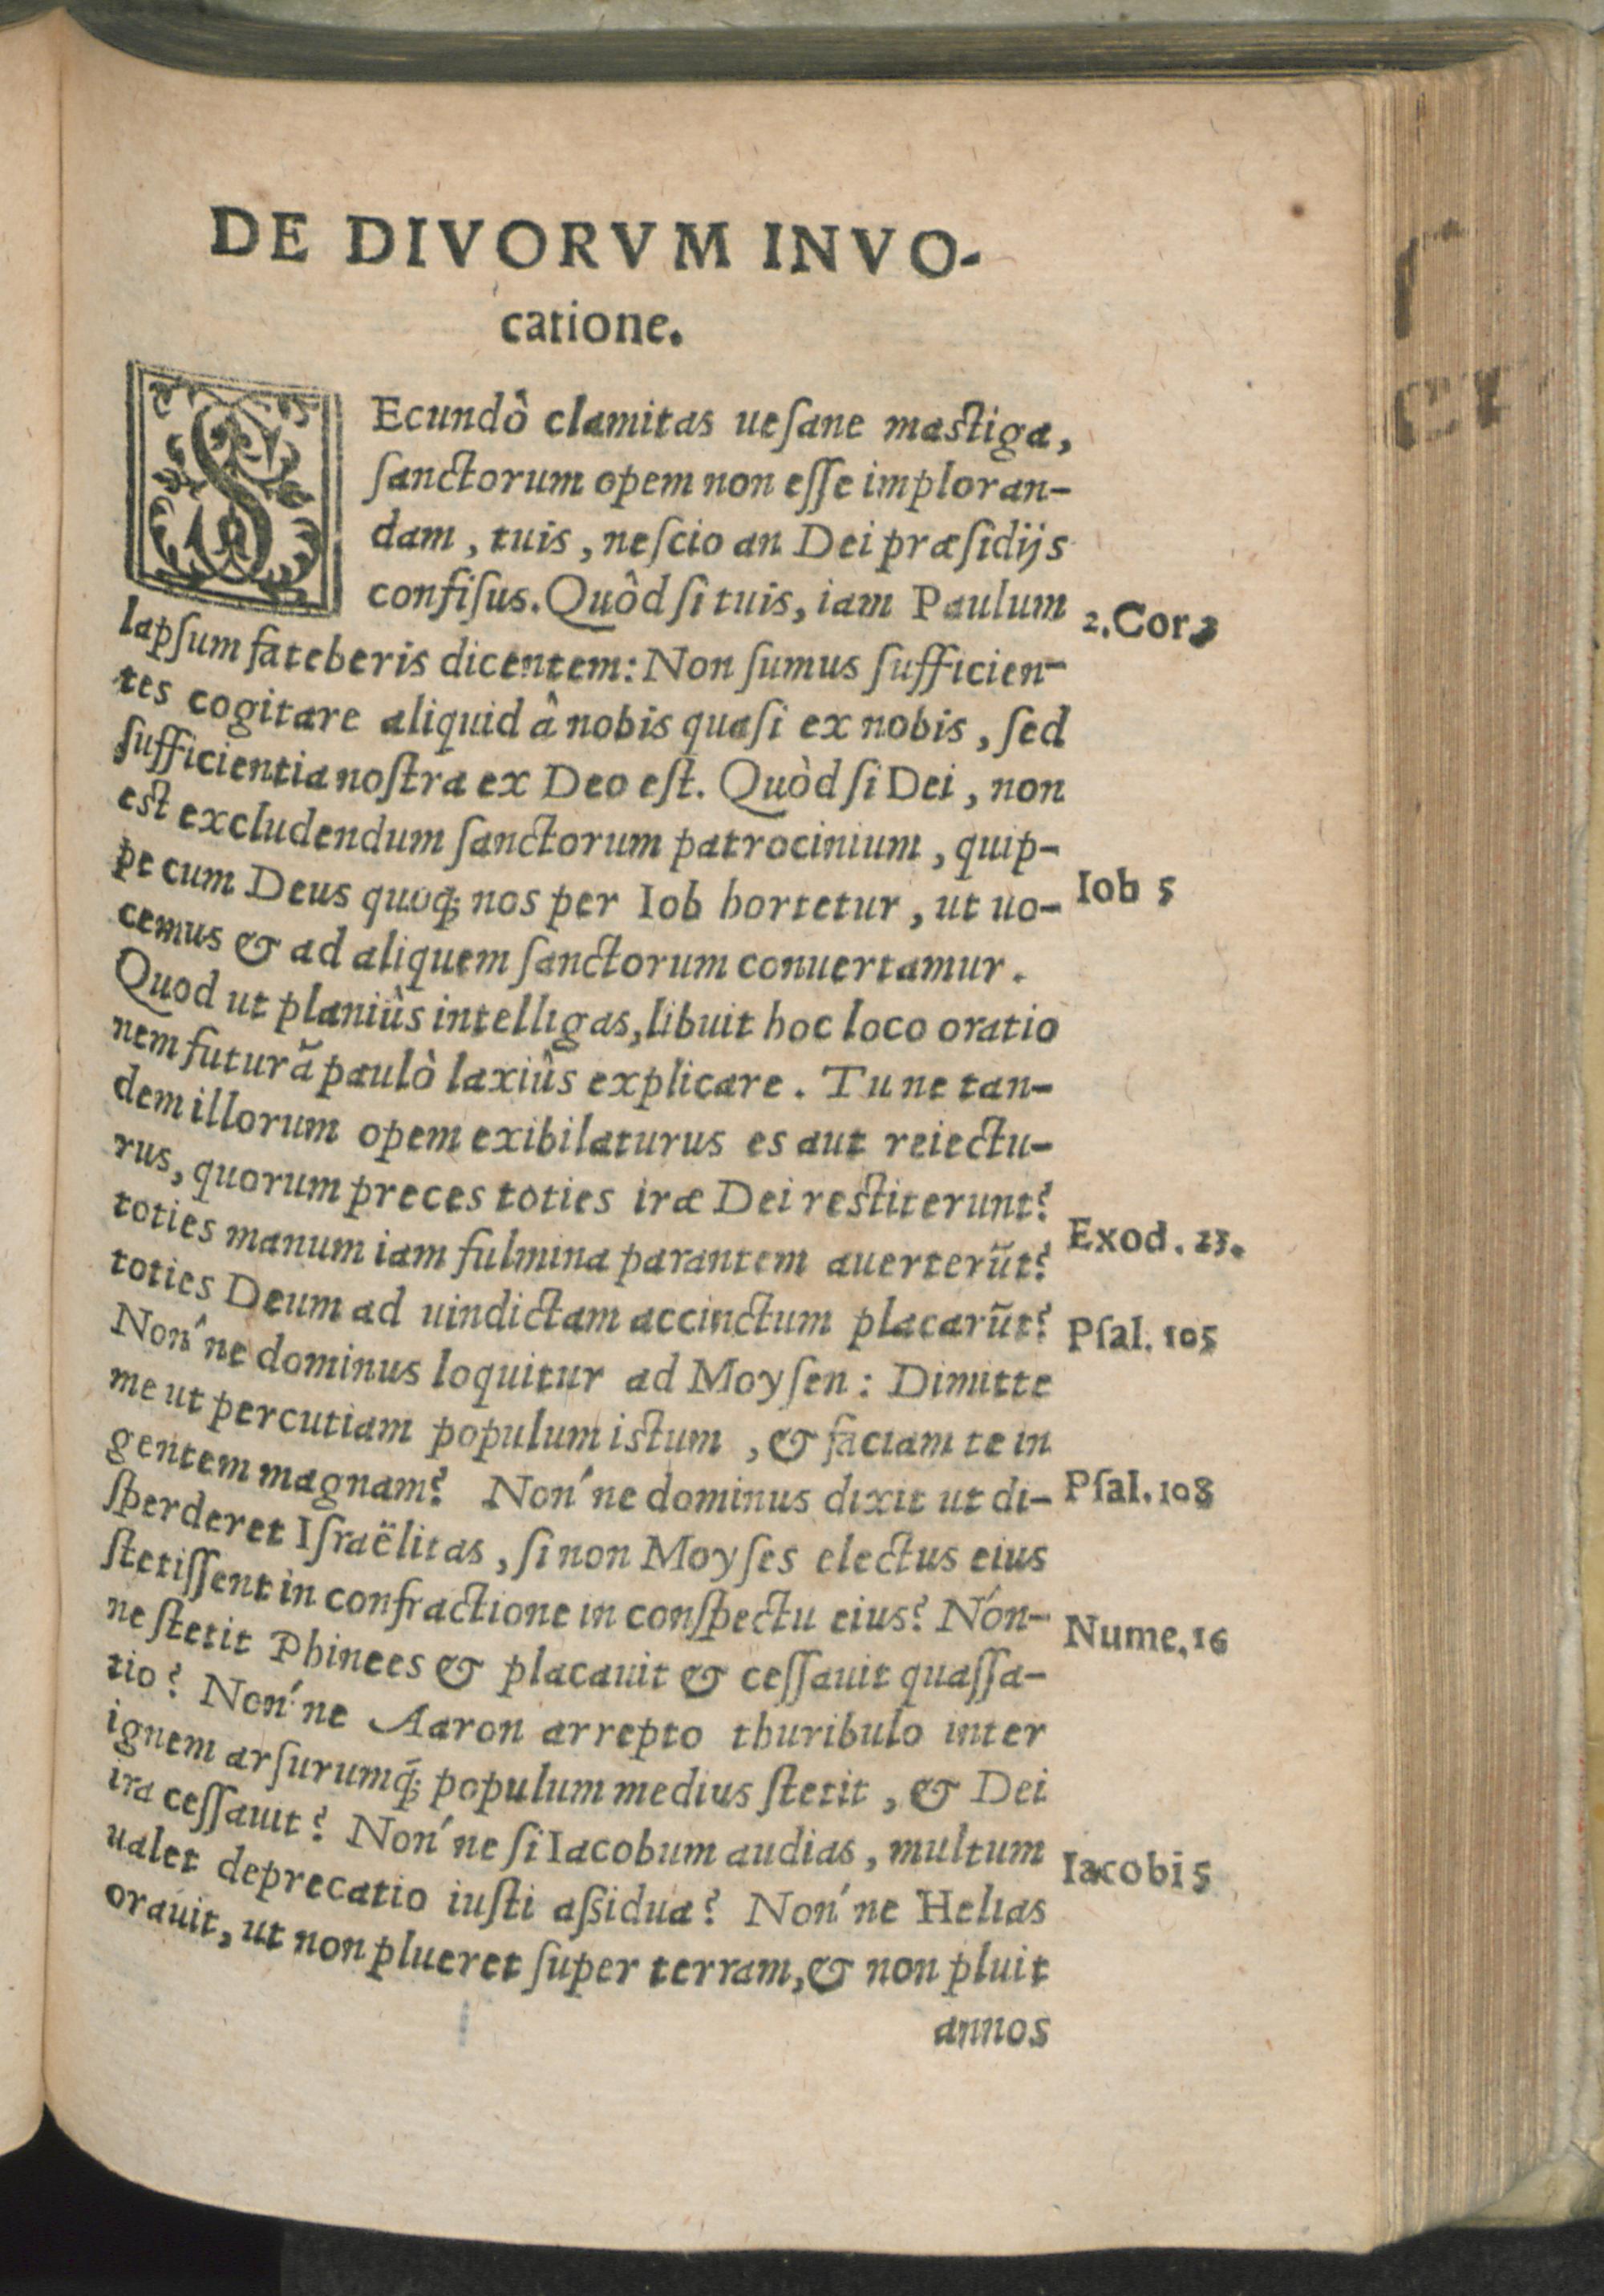 DE DIVORVM INVO-
catione.
SEcundô clamitas ueſane mastiga,
ſanctorum opem non eſſe imploran-
dam, tuis, neſcio an Dei præſidijs
confiſus. Quôd ſi tuis, iam Paulum
2. Cor. 3
lapſum fateberis dicentem: Non ſumus ſufficien-
tes cogitare aliquid â nobis quaſi ex nobis, ſed
ſufficientia noſtra ex Deo eſt. Quòd ſi Dei, non
est excludendum ſanctorum patrocinium, quip-
pe cum Deus quoq; nos per Iob hortetur, ut uo-
Iob 5
cemus & ad aliquem ſanctorum conuertamur.
Quod ut planiûs intelligas, libuit hoc loco oratio
nem futurã paulò laxiûs explicare. Tu ne tan-
dem illorum opem exibilaturus es aut reiectu-
rus, quorum preces toties iræ Dei restiterunt?
toties manum iam fulmina parantem auerterũt?
Exod. 23.
toties Deum ad uindictam accinctum placarũt?
Pſal. 105
Non'ne dominus loquitur ad Moyſen: Dimitte
me ut percutiam populum istum, & faciam te in
gentem magnam? Non'ne dominus dixit ut di-
Pſal. 108
ſperderet Iſraëlitas, ſi non Moyſes electus eius
ſtetiſſent in confractione in conſpectu eius? Nón-
ne ſtetit Phinees & placauit & ceſſauit quaſſa-
Nume. 16
tio? Non'ne Aaron arrepto thuribulo inter
ignem arſurumq́; populum medius ſtetit, & Dei
ira ceſſauit? Non'ne ſi Iacobum audias, multum
ualet deprecatio iuſti aſsidua? Non'ne Helias
Iacobi 5
orauit, ut non plueret ſuper terram, & non pluit
annos